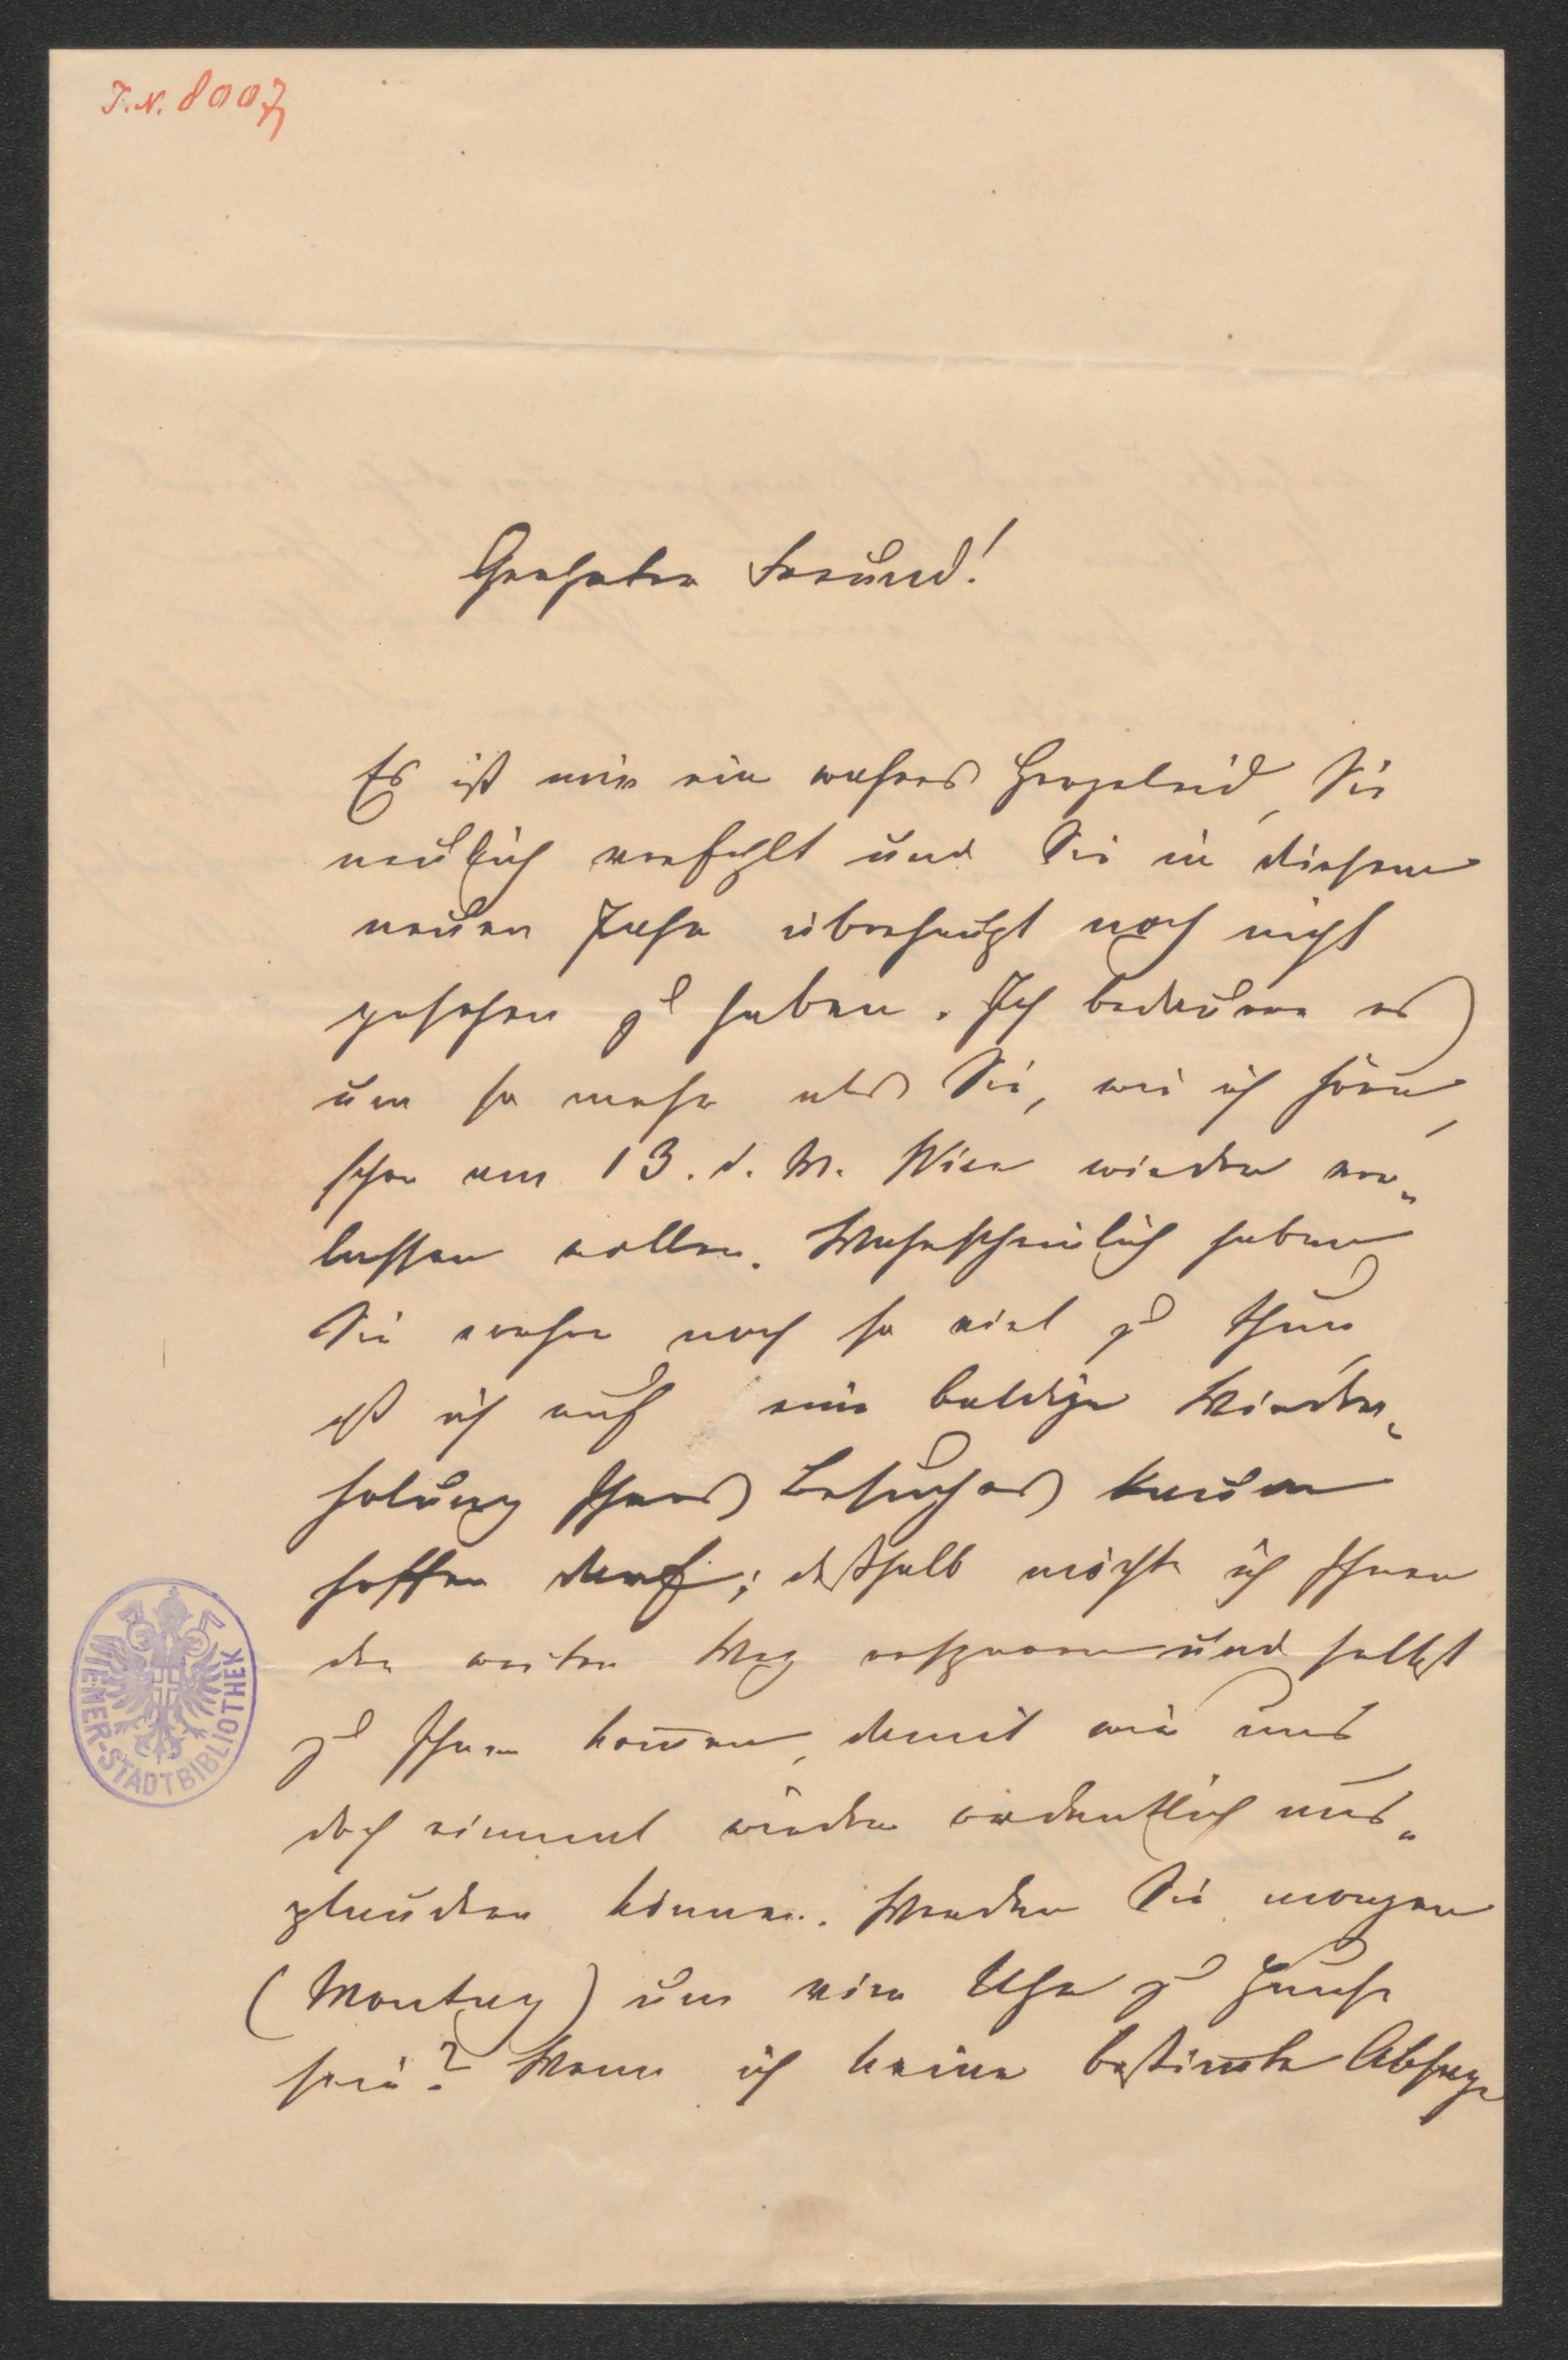 I.N. 8007
Geehrter Freund!
Es ist mir ein wahres Herzeleid, Sie
neulich verfehlt und Sie in diesem
neuen Jahr überhaupt noch nicht
gesehen zu haben. Ich bedauere es
um so mehr als Sie, wie ich höre,
schon am 13. d. M. Wien wieder ver„
lassen wollen. Wahrscheinlich haben
Sie vorher noch so viel zu thun,
ich auf eine baldige Wieder„
holung Ihres Besuches kaum
hoffen darf; deßhalb möchte ich Ihnen
den weiten Weg ersparen und selbst
zu Ihnen kom̅en, damit wir uns
doch einmal wieder ordentlich aus„
plaudern können. Werden Sie morgen
(Montag) um vier Uhr zu Hause
sein? Wenn ich keine bestim̅te Absage
WIENER-STADTBIBLIOTHEK